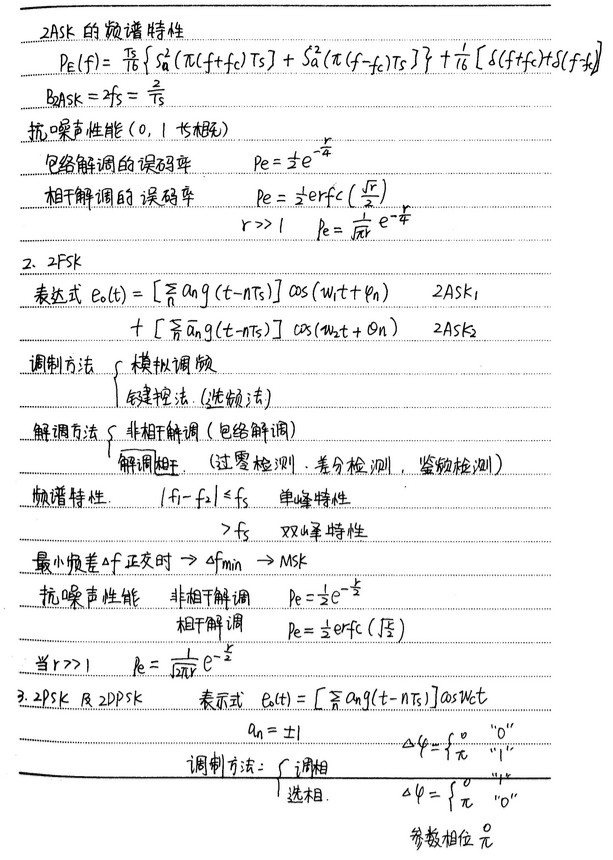 2ASK 的频谱特性
P_E(f) = Ts/16 { Sa²(π(f+fc)Ts] + Sa²(π(f-fc)Ts] } + 1/16 [ δ(f+fc)+δ(f-fc)]
B2ASK = 2fs = 2/Ts
抗噪声性能(0, 1 等概)
包络解调的误码率 Pe = 1/2 e^(-r/4)
相干解调的误码率 Pe = 1/2 erfc (√r/2)
r >> 1 Pe = 1/√(πr) e^(-r/4)
2. 2FSK
表达式 e₀(t) = [Σn an g(t-nTs)] cos(w₁t+φn) 2ASK₁
+ [Σn ān g(t-nTs)] cos(w₂t+θn) 2ASK₂
调制方法 { 模拟调频
键控法.(选频法)
解调方法 { 非相干解调(包络解调)
解调相干. (过零检测. 差分检测, 鉴频检测)
频谱特性. |f₁-f₂| ≤ fs 单峰特性
> fs 双峰特性
最小频差Δf正交时 → Δfmin → MSK
抗噪声性能 非相干解调 Pe = 1/2 e^(-r/2)
相干解调 Pe = 1/2 erfc(√(r/2))
当r>>1 Pe = 1/√(2πr) e^(-r/2)
3. 2PSK 及 2DPSK 表示式 e₀(t) = [Σn an g(t-nTs)] cos wct
an = ±1 Δφ = { 0 "0"
π "1"
调制方法: { 调相 Δφ = { 0 "1"
选相. π "0"
参数相位 0 π